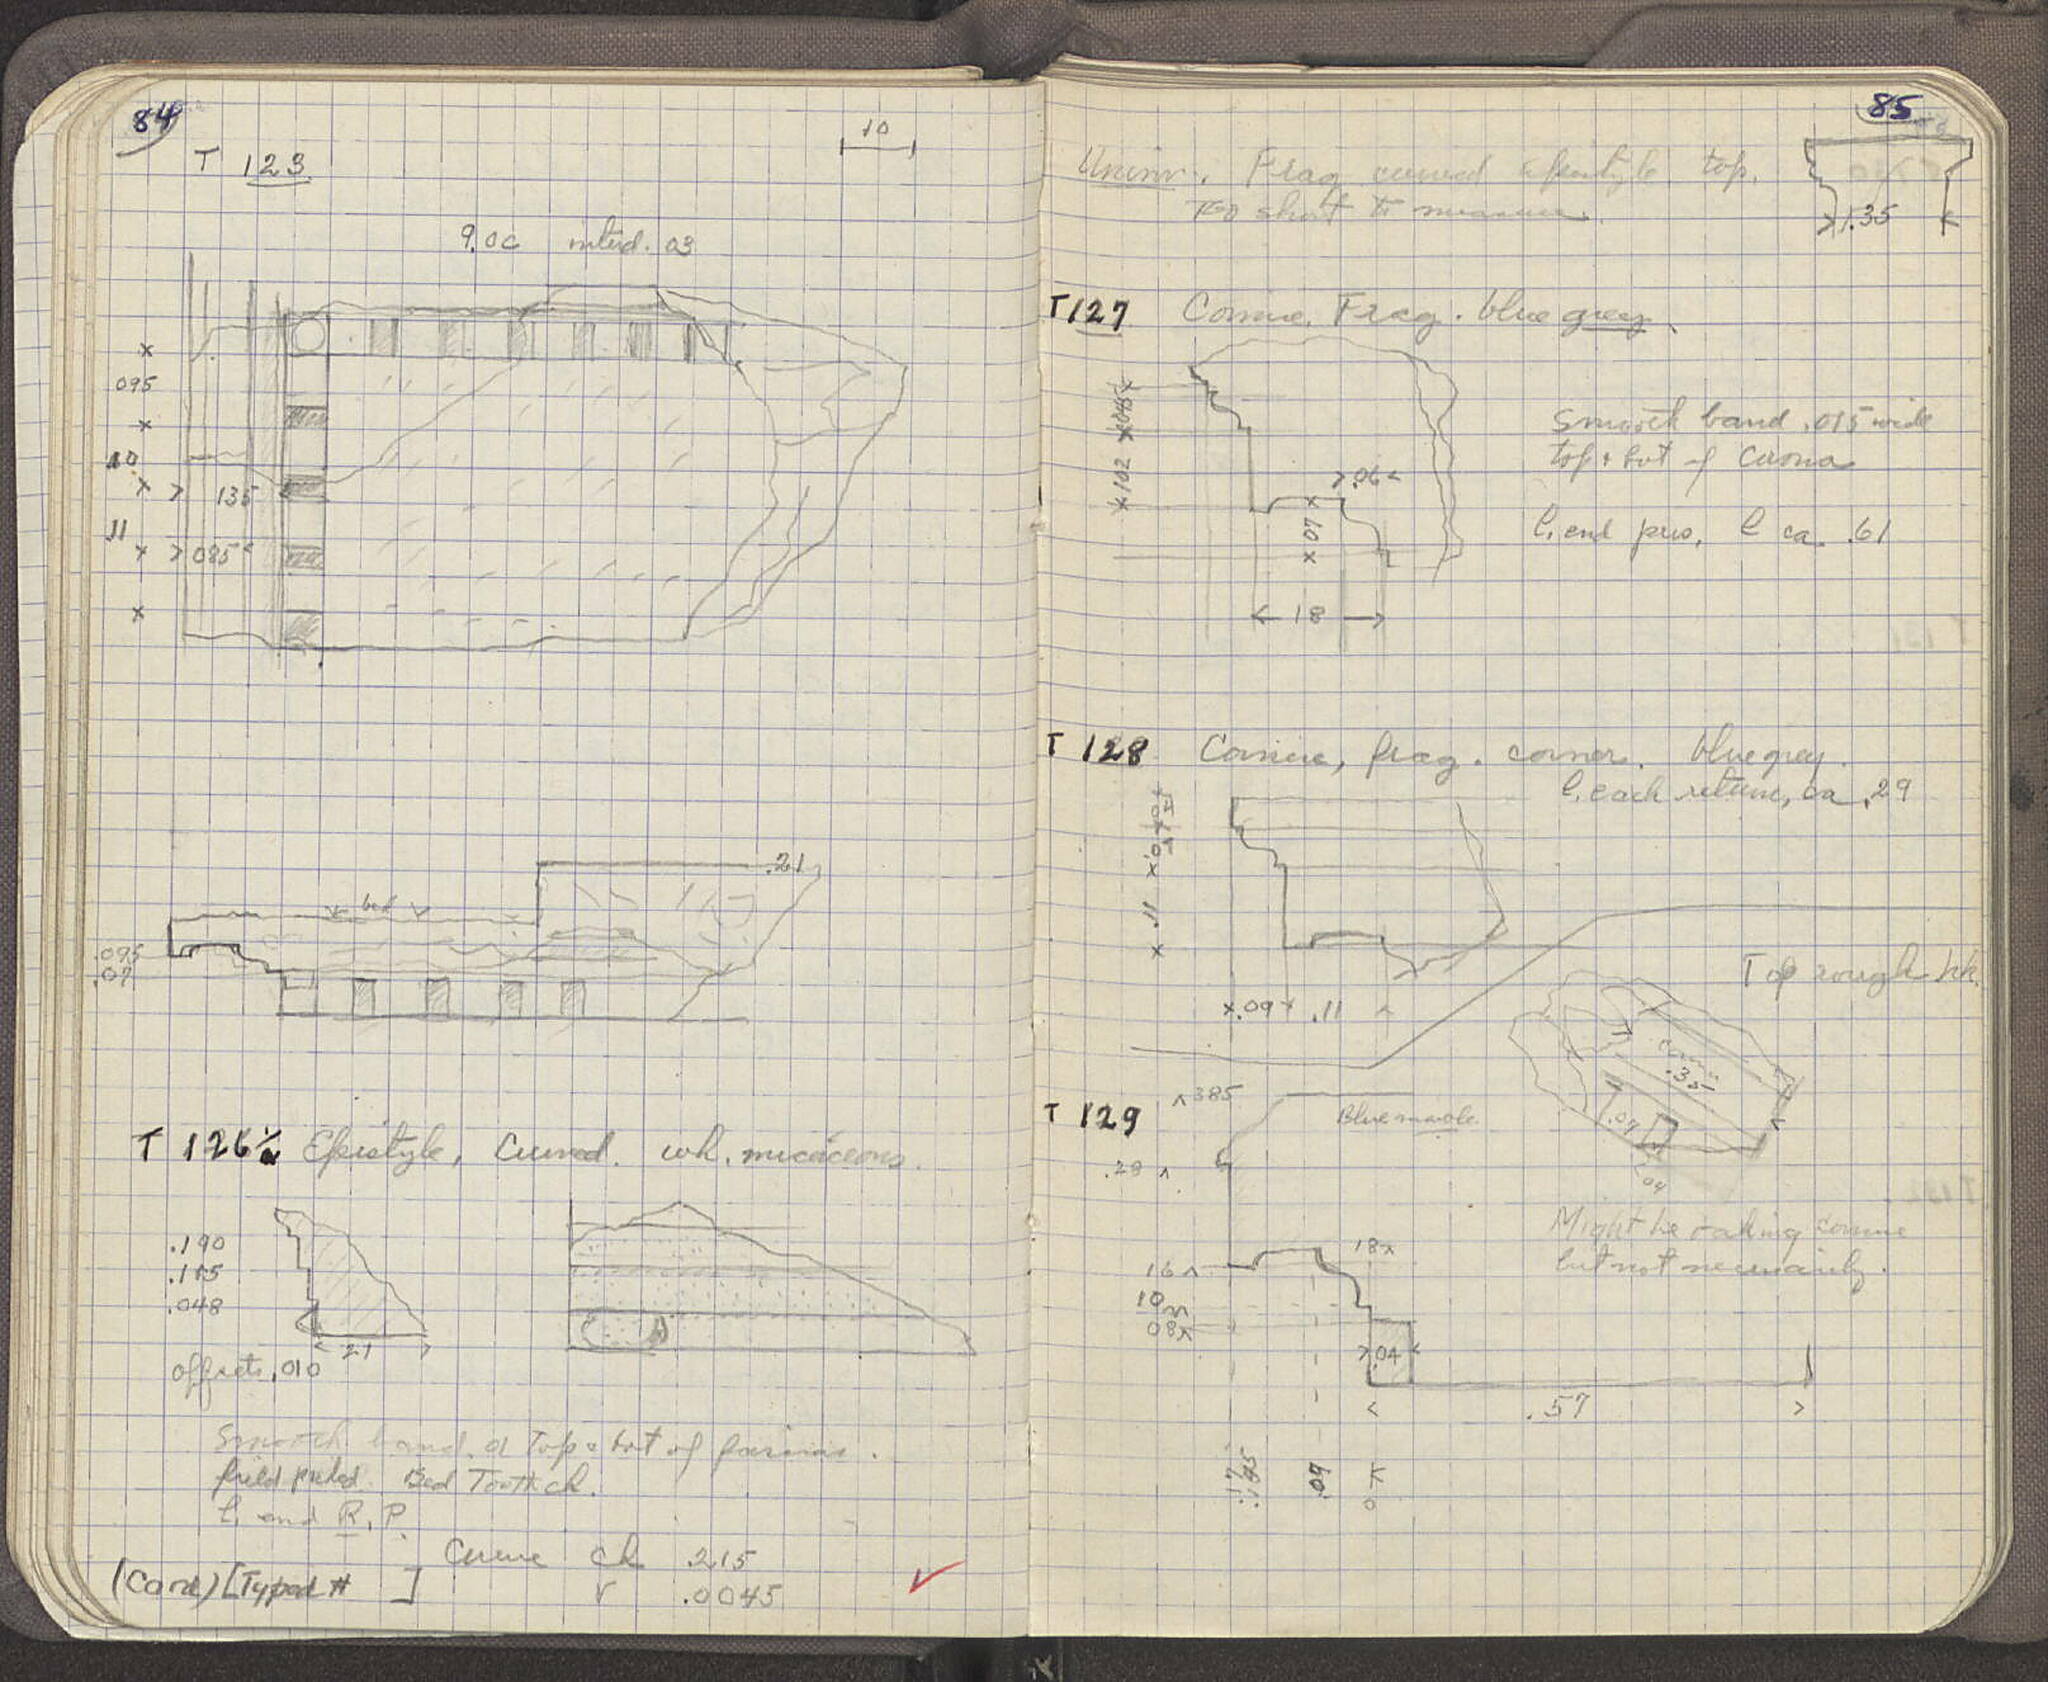 84
10
T 123
9.0c
.03
095
10
135
11
085
.21
bed
.095
.07
T 126½ Epistyle, Curved. wh. micaceous.
.190
.115
.048
21
offsets .010
Smooth band at Top & bot of fascias.
field picked. Bed Tooth ch.
l. end R. P.
Curve ch .215
V .0045
(Card) [Typed # ]
85
Uninv. Frag curved epistyle, top.
Too short to measure.
.35
T 127 Cornice, Frag. blue grey.
.045
.102
.06
Smooth band .015 wide
top & bot of Corona
.07
l. end pres. l ca. .61
18
T 128 Cornice, frag. corner. blue grey.
l. each return, ca .29
.11
.09 .11
Top rough
T 129
385
Blue marble.
.35
.07
.04
.28
Might be raking cornice
but not necessarily.
18
16
10
08
.04
.57
.17
.195
.09
0